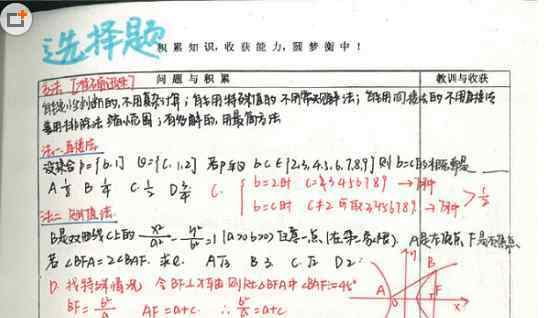 选择题
积累知识，收获能力，圆梦衡中！
方法【准确迅速】 问题与积累 教训与收获
能定性判断的，不用复杂计算；能用特殊值的不用常规解法；能用间接法的不用直接法
善用排除法缩小范围；有多解的，用最简方法
法一.直接法
设集合P={b,1} Q={c,1,2} 若P⊆Q b.c∈{2,3,4,5,6,7,8,9} 则b=c的概率是
A 1/8 B 1/4 C. 1/2 D 3/4 C. b=2时 C=3 4 5 6 7 8 9 → 7种
b=c时 C≠2 可取3 4 5 6 7 8 9 → 7种 > 1/2
法二 特值法.
B是双曲线C上的 x²/a² - y²/b² =1 (a>0 b>0) 任意一点 A是左顶点 F是右焦点
若∠BFA=2∠BAF. 求e. A √3 B 3 C. √2 D 2
D. 找特殊情况 令BF⊥x轴 则Rt△BFA中∠BAF=45°
BF= b²/a AF=a+c ∴ b²/a = a+c